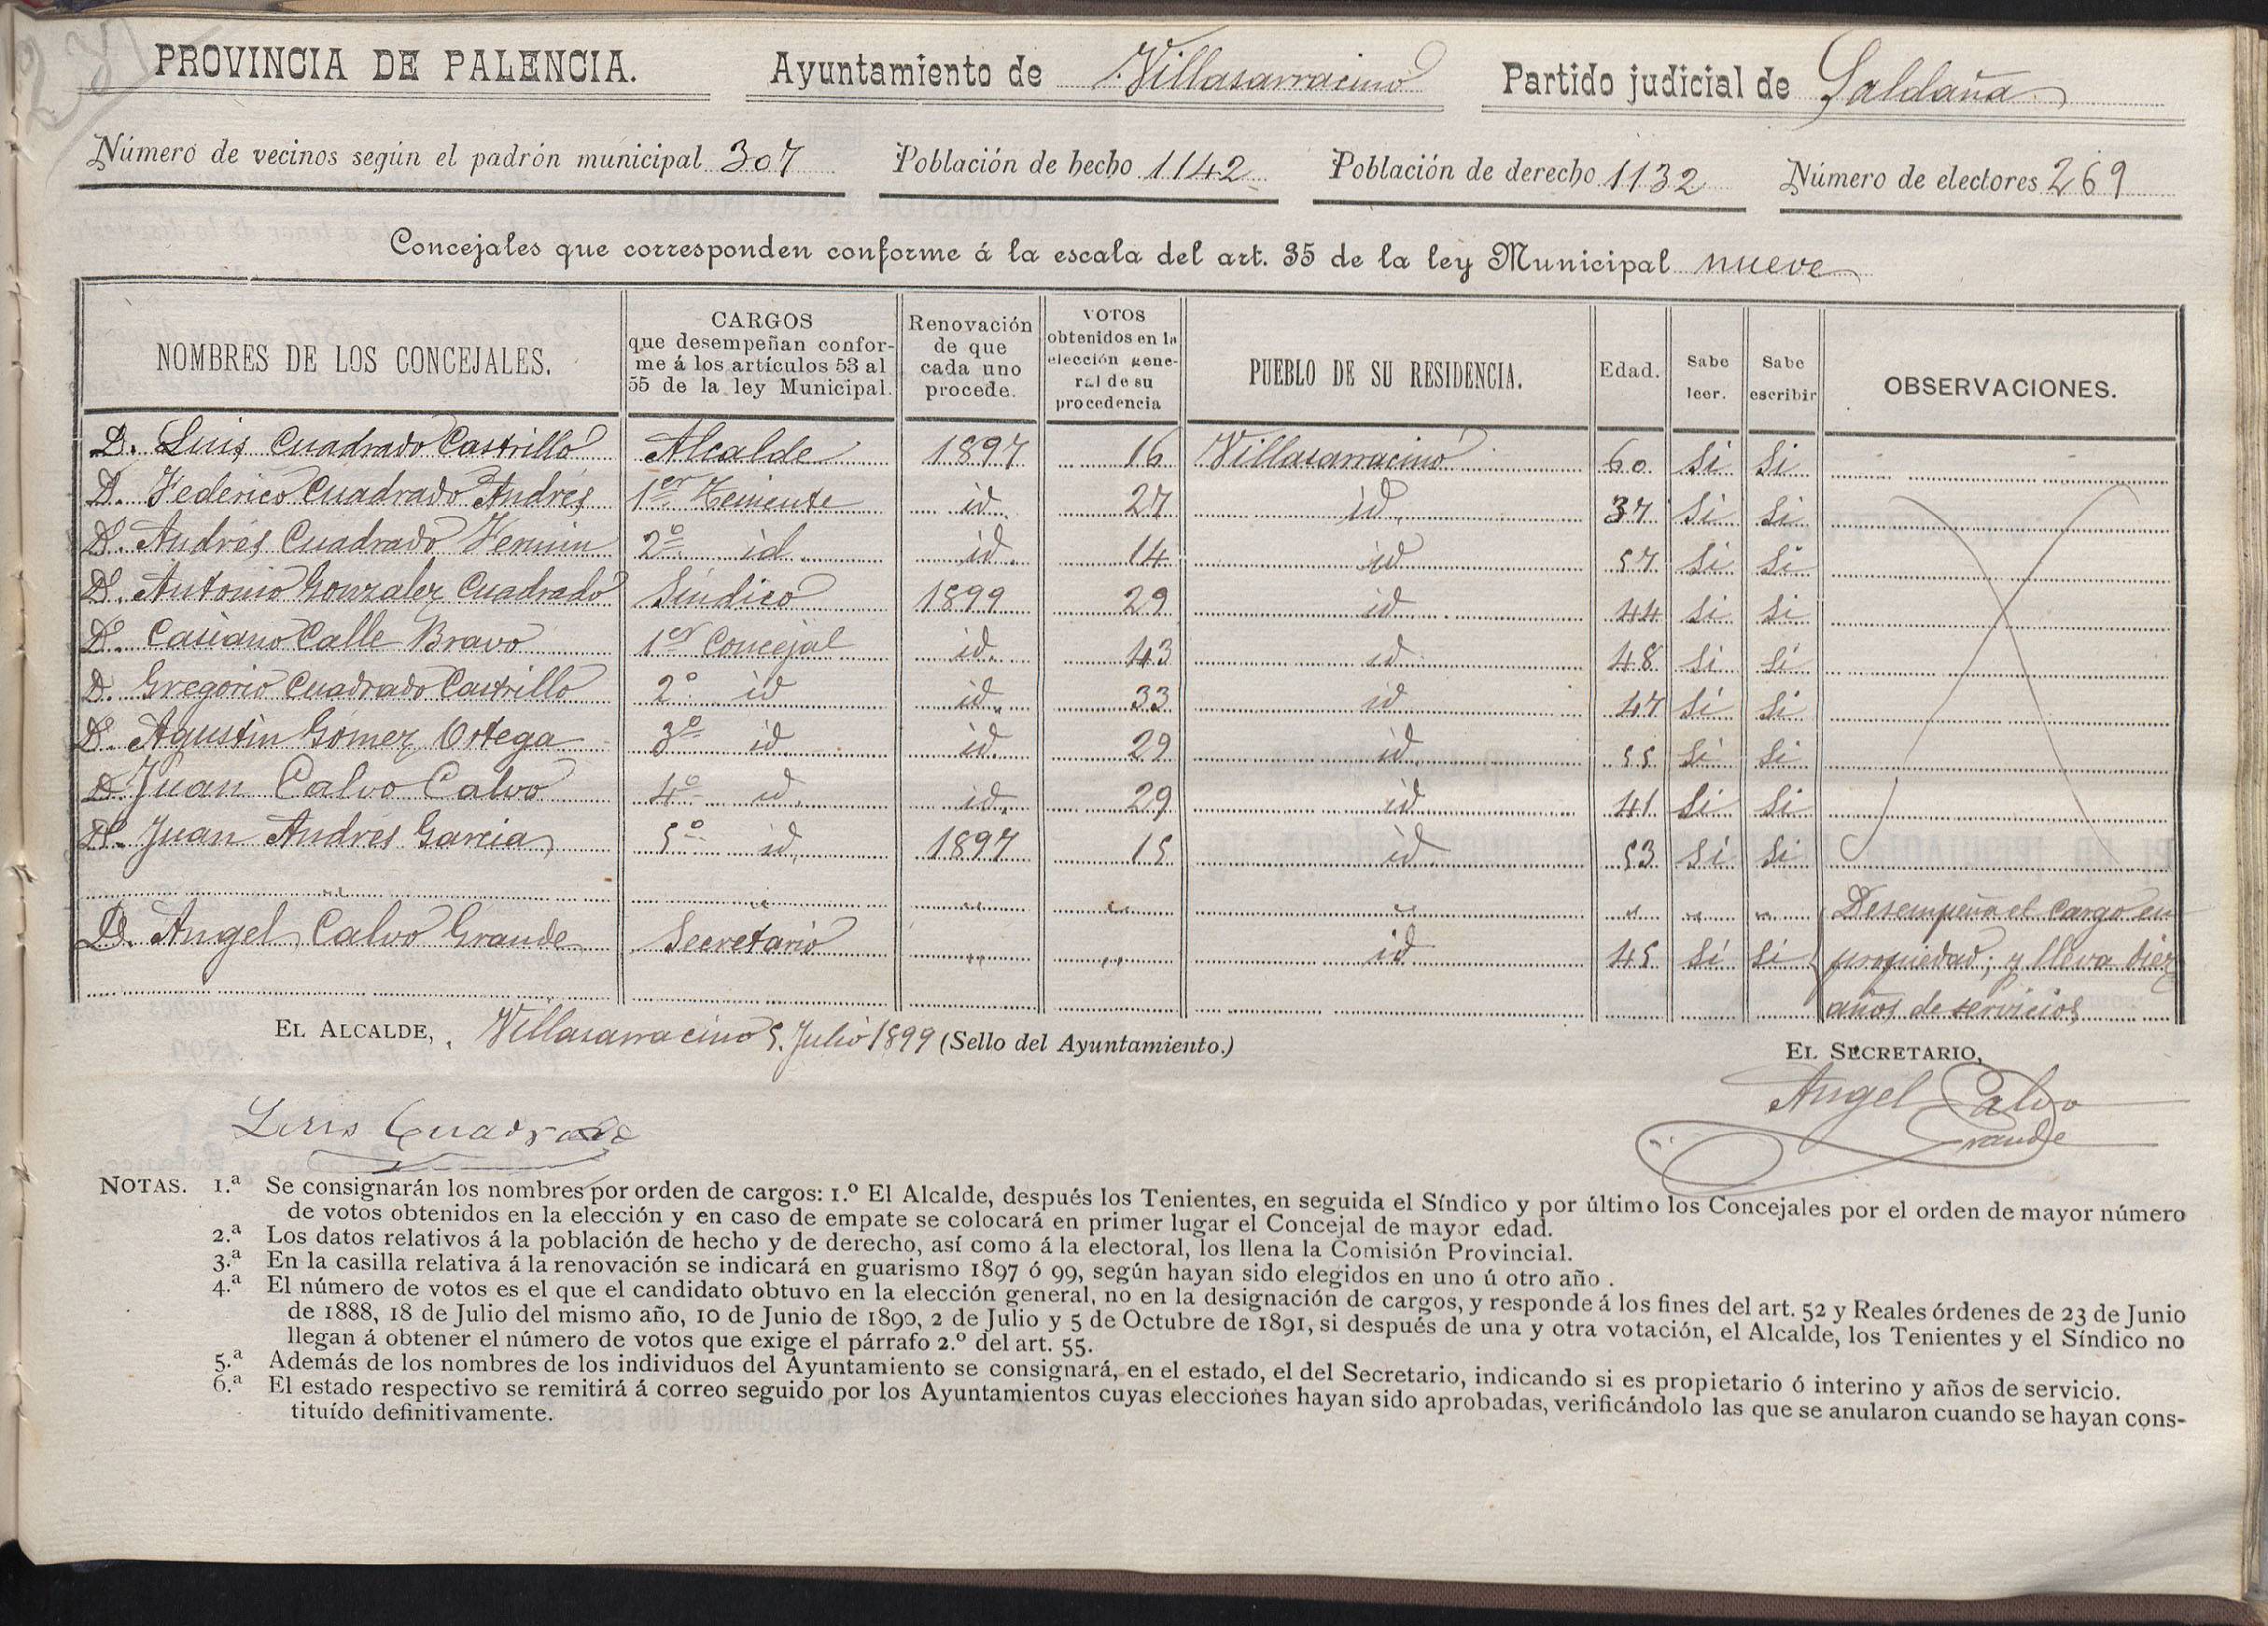 281
PROVINCIA DE PALENCIA. Ayuntamiento de Villasarracino Partido judicial de Saldaña
Número de vecinos según el padrón municipal 307 Población de hecho 1142 Población de derecho 1132 Número de electores 269
Concejales que corresponden conforme á la escala del art. 35 de la ley Municipal nueve
NOMBRES DE LOS CONCEJALES. CARGOS que desempeñan conforme á los artículos 53 al 55 de la ley Municipal. Renovación de que cada uno procede. VOTOS obtenidos en la elección general de su procedencia PUEBLO DE SU RESIDENCIA. Edad. Sabe leer. Sabe escribir OBSERVACIONES.
D. Luis Cuadrado Castrillo Alcalde 1897 16 Villasarracino 60 Si Si
D. Federico Cuadrado Andrés 1er Teniente id. 27 id. 37 Si Si
D. Andrés Cuadrado Fermin 2º id. id. 14 id 57 Si Si
D. Antonio Gonzalez Cuadrado Síndico 1899 29 id 44 Si Si
D. Casiano Calle Bravo 1er Concejal id. 43 id 48 Si Si
D. Gregorio Cuadrado Castrillo 2º id id. 33 id 47 Si Si
D. Agustin Gómez Ortega 3º id. id. 29 id. 55 Si Si
D. Juan Calvo Calvo 4º id. id. 29 id. 41 Si Si
D. Juan Andrés Garcia 5º id. 1897 15 id 53 Si Si
" " " " " " " " Desempeña el cargo en
D. Angel Calvo Grande Secretario " " id 45 Si Si propiedad; y lleva diez
años de servicios
EL ALCALDE, Villasarracino 5 Julio 1899 (Sello del Ayuntamiento.)
EL SECRETARIO,
Angel Calvo
Grande
Luis Cuadrado
NOTAS. 1.ª Se consignarán los nombres por orden de cargos: 1.º El Alcalde, después los Tenientes, en seguida el Síndico y por último los Concejales por el orden de mayor número
de votos obtenidos en la elección y en caso de empate se colocará en primer lugar el Concejal de mayor edad.
2.ª Los datos relativos á la población de hecho y de derecho, así como á la electoral, los llena la Comisión Provincial.
3.ª En la casilla relativa á la renovación se indicará en guarismo 1897 ó 99, según hayan sido elegidos en uno ú otro año .
4.ª El número de votos es el que el candidato obtuvo en la elección general, no en la designación de cargos, y responde á los fines del art. 52 y Reales órdenes de 23 de Junio
de 1888, 18 de Julio del mismo año, 10 de Junio de 1890, 2 de Julio y 5 de Octubre de 1891, si después de una y otra votación, el Alcalde, los Tenientes y el Síndico no
llegan á obtener el número de votos que exige el párrafo 2.º del art. 55.
5.ª Además de los nombres de los individuos del Ayuntamiento se consignará, en el estado, el del Secretario, indicando si es propietario ó interino y años de servicio.
6.ª El estado respectivo se remitirá á correo seguido por los Ayuntamientos cuyas elecciones hayan sido aprobadas, verificándolo las que se anularon cuando se hayan cons-
tituído definitivamente.